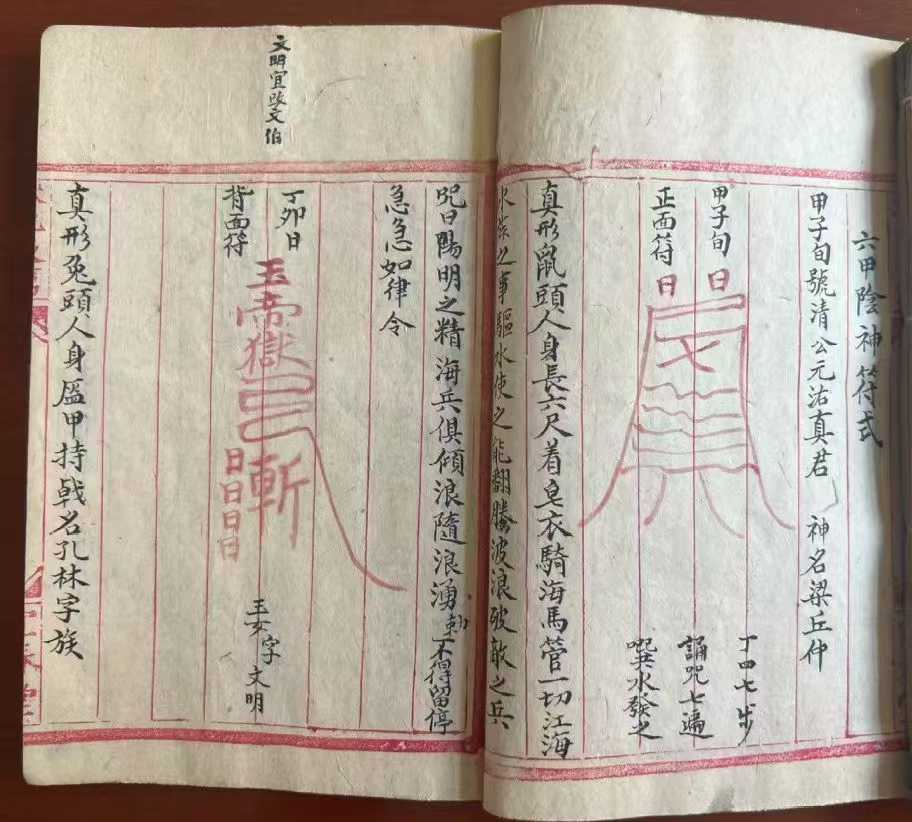 六甲陰神符式
甲子旬號清公元沽真君　神名梁丘仲
甲子旬
日
丁四七步
正面符
日
誦咒七遍
噀水發之
真形鼠頭人身長六尺着皂衣騎海馬管一切江海
水族之事驅水使之能翻騰波浪破敵之兵
咒曰陽明之精海兵俱傾浪隨浪湧勅不得留停
急急如律令
文明宜改文伯
丁卯日
背面符
玉帝獄
斬
日日日日
玉女字文明
真形兔頭人身盔甲持戟名孔林字族